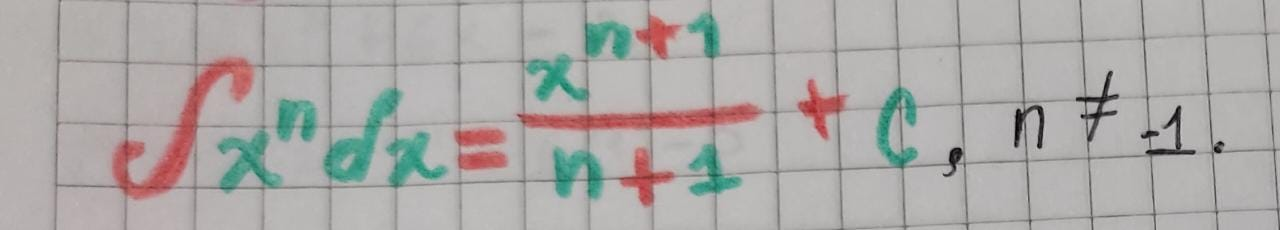 ∫xⁿdx = xⁿ⁺¹/n+1 + C, n ≠ -1.